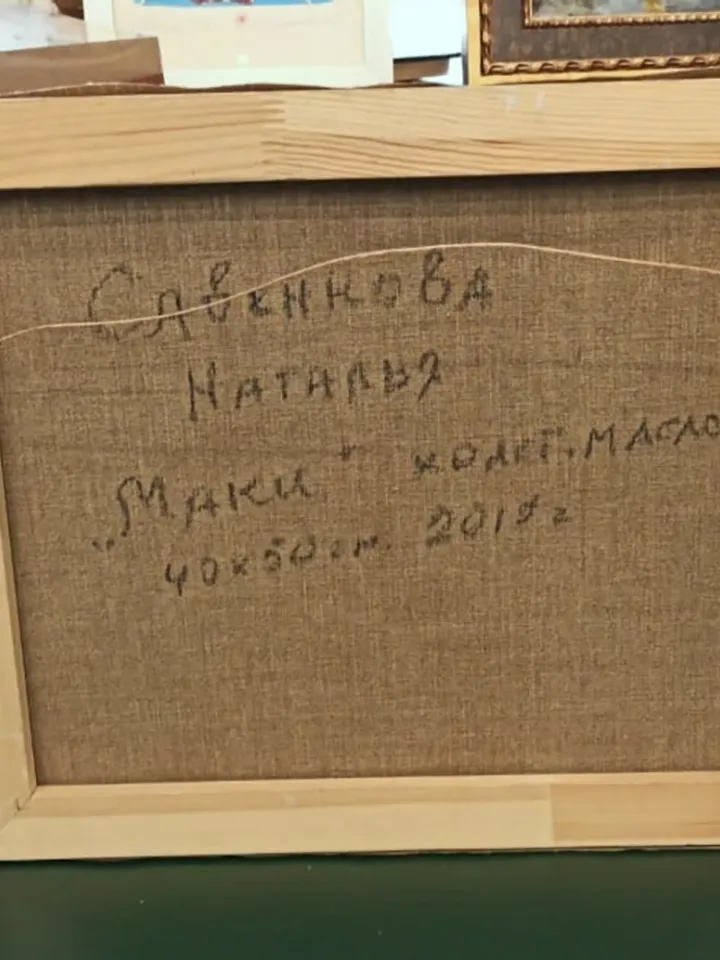 Савенкова
Наталья
„Маки" холст, масло
40х50см. 2019г